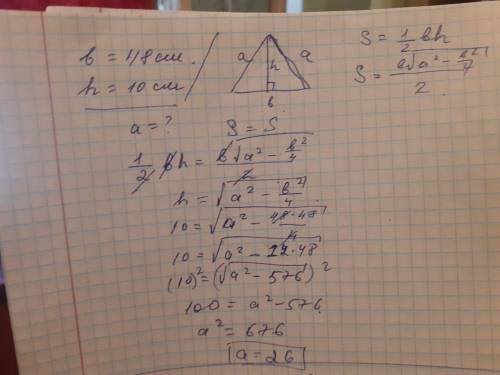 в = 48 см.
h = 10 см
a = ?
a h a
в
S = 1/2 вh
S = в√(a² − в²/4) / 2
S = S
1/2 вh = в√(a² − в²/4) / 2
h = √(a² − в²/4)
10 = √(a² − 48·48/4)
10 = √(a² − 12·48)
(10)² = (√(a² − 576))²
100 = a² − 576
a² = 676
a = 26